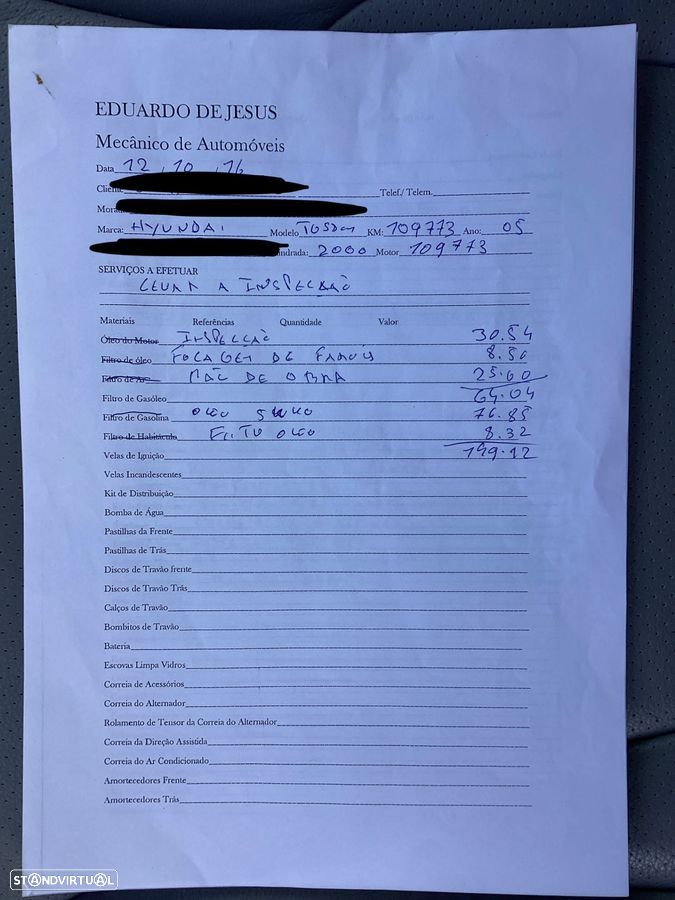 EDUARDO DE JESUS
Mecânico de Automóveis
Data 12 . 10 . 16
Telef./ Telem.
Mora
Marca: HYUNDAI Modelo KM: 109773 Ano: 05
indrada: 2000 Motor 109773
SERVIÇOS A EFETUAR
LEVAR A INSPECÇÃO
Materiais Referências Quantidade Valor
Óleo do Motor INSPECÇÃO 30.54
Filtro de óleo FOCAGEM DE FAROIS 8.50
Filtro de Ar MÃO DE OBRA 25.00
Filtro de Gasóleo 64.04
Filtro de Gasolina OLEO 76.85
Filtro de Habitáculo FILTRO OLEO 8.32
Velas de Ignição 149.12
Velas Incandescentes
Kit de Distribuição
Bomba de Água
Pastilhas da Frente
Pastilhas de Trás
Discos de Travão frente
Discos de Travão Trás
Calços de Travão
Bombitos de Travão
Bateria
Escovas Limpa Vidros
Correia de Acessórios
Correia do Alternador
Rolamento de Tensor da Correia do Alternador
Correia da Direção Assistida
Correia do Ar Condicionado
Amortecedores Frente
Amortecedores Trás
STANDVIRTUAL